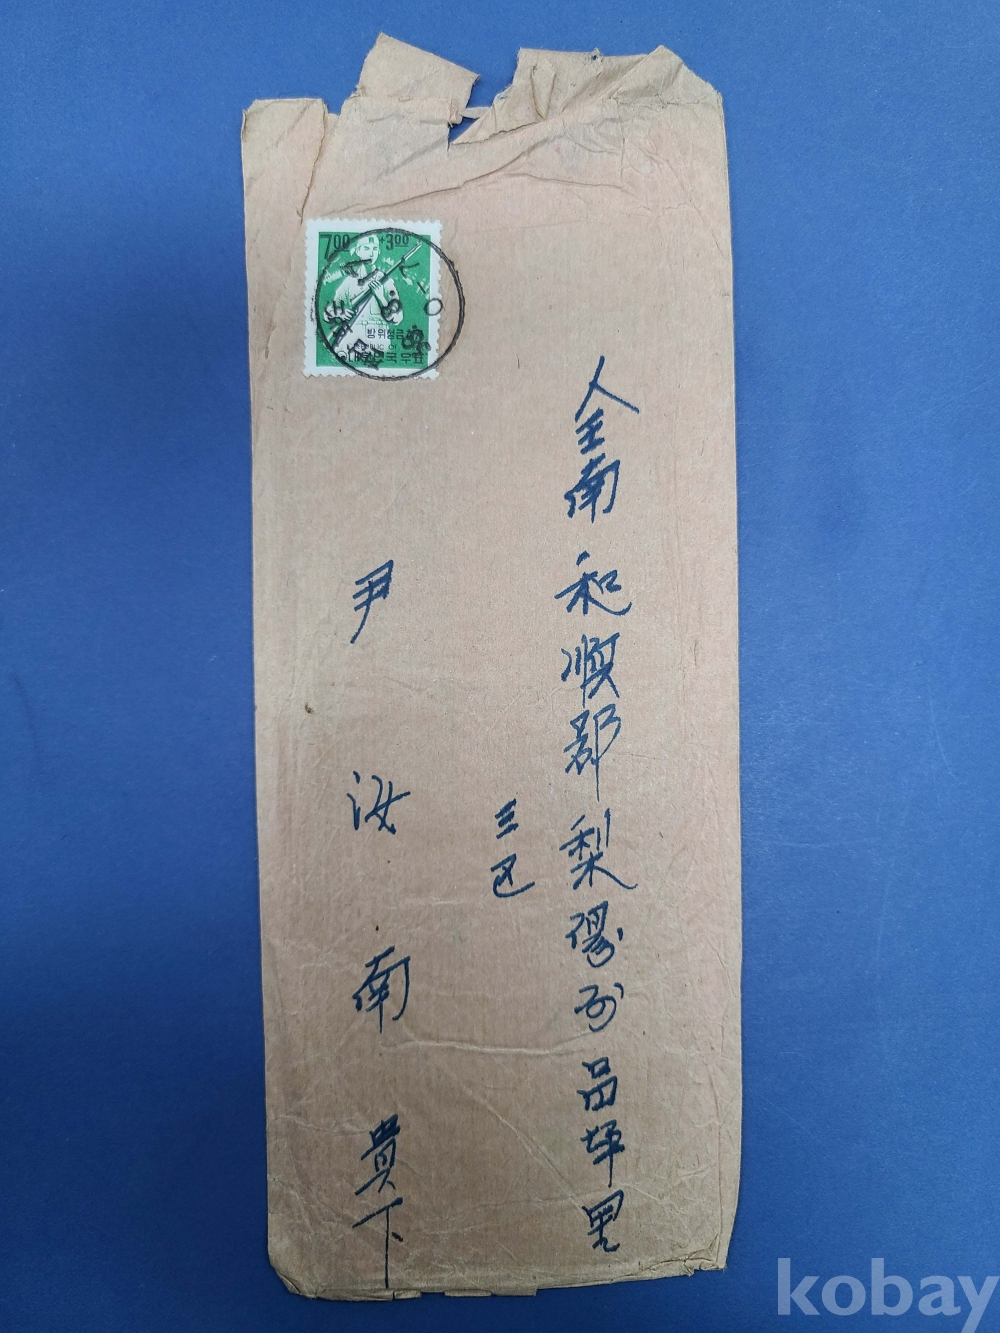 7.00 +3.00
방위성금
대한민국우표
全南 和順郡 梨陽面 品坪里
三区
尹汝南 貴下
kobay